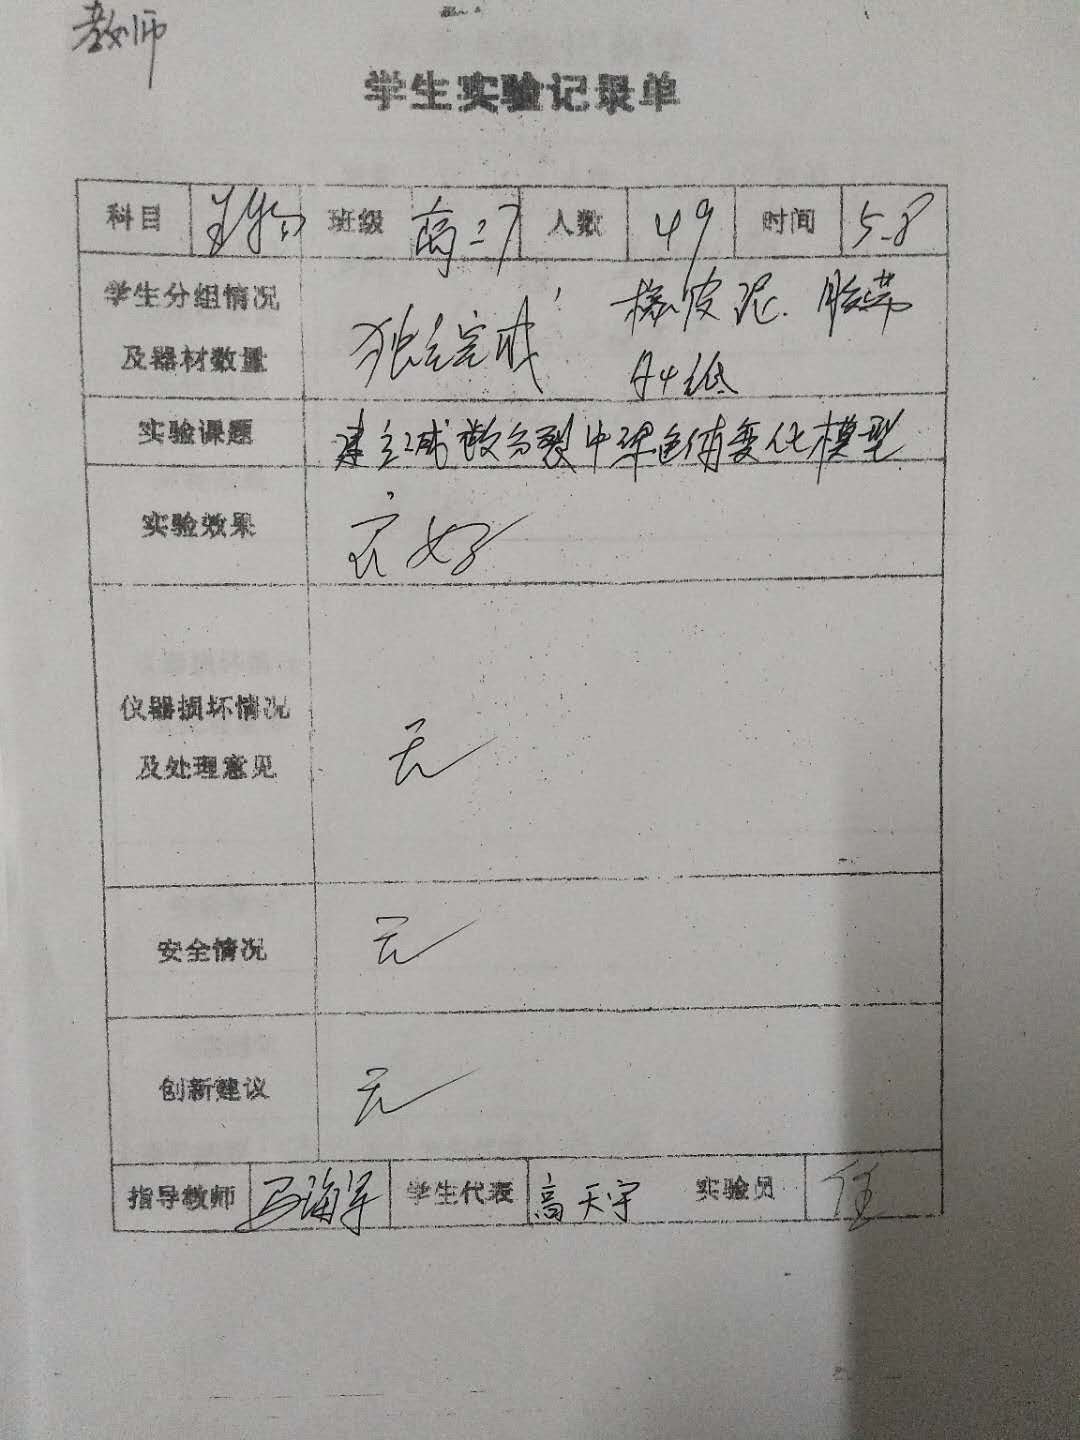 教师
学生实验记录单
科目 生物 班级 高二7 人数 49 时间 5.8
学生分组情况
及器材数量
独立完成 橡皮泥、胶带
A4纸
实验课题 建立减数分裂中染色体变化模型
实验效果 良好
仪器损坏情况
及处理意见
无
安全情况 无
创新建议 无
指导教师 马海军 学生代表 高天宇 实验员